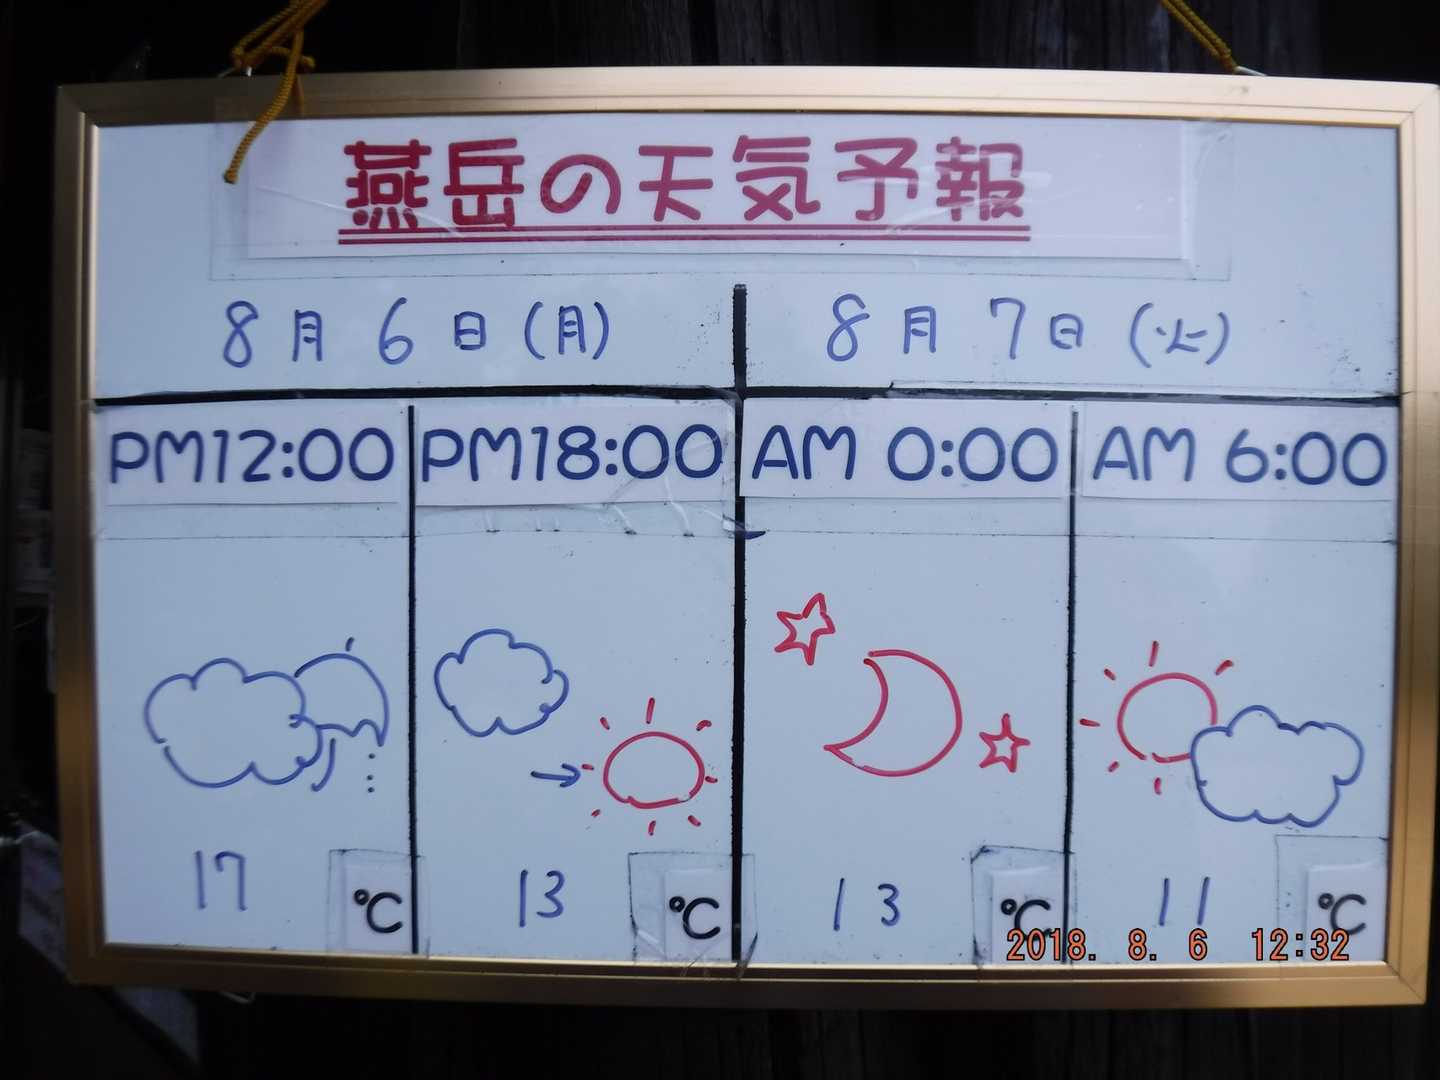 燕岳の天気予報
8月6日(月)
8月7日(火)
PM12:00
PM18:00
AM 0:00
AM 6:00
17 ℃
13 ℃
13 ℃
11 ℃
2018. 8. 6 12:32